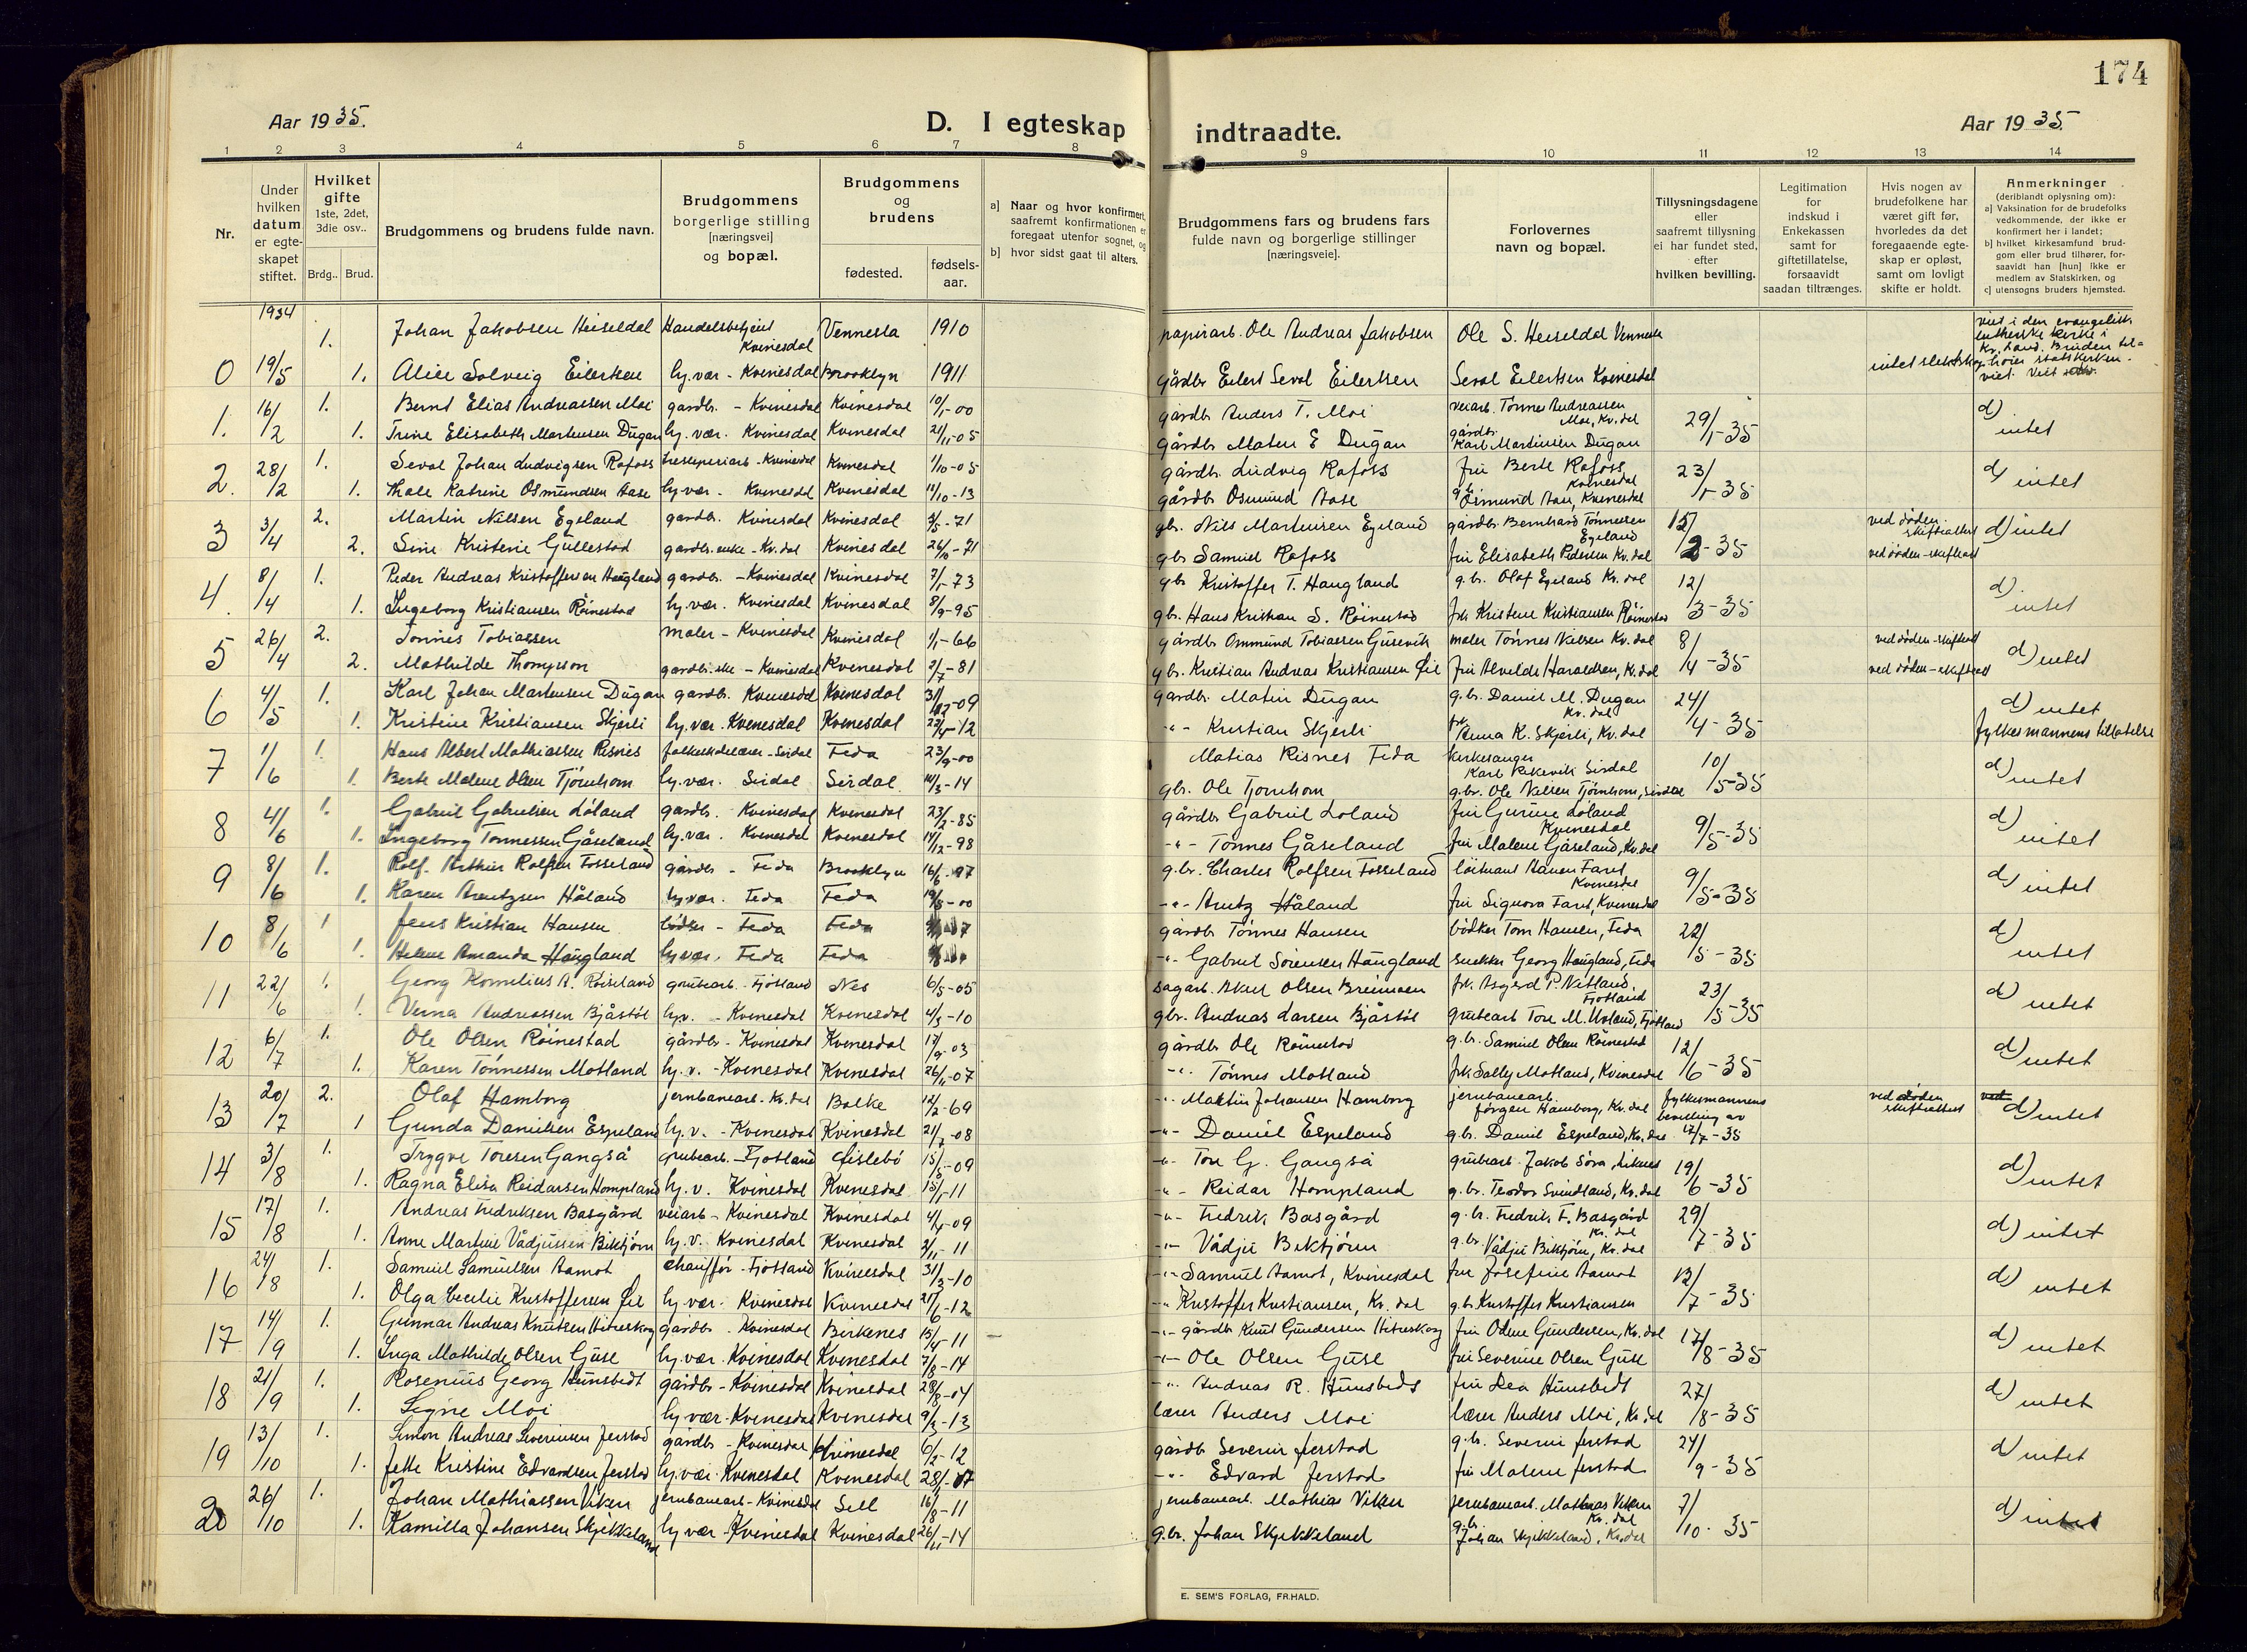 174
Aar 1935.
D. I egteskap indtraadte.
Aar 1935.
1 2 3 4 5 6 7 8 9 10 11 12 13 14
Nr.
Under hvilken datum er egte-skapet stiftet.
Hvilket gifte 1ste, 2det, 3die osv..
Brdg.. Brud.
Brudgommens og brudens fulde navn.
Brudgommens borgerlige stilling [næringsvei] og bopæl.
Brudgommens og brudens
fødested. fødsels-aar.
a] Naar og hvor konfirmert, saafremt konfirmationen er foregaat utenfor sognet, og
b] hvor sidst gaat til alters.
Brudgommens fars og brudens fars fulde navn og borgerlige stillinger [næringsveie].
Forlovernes navn og bopæl.
Tillysningsdagene eller saafremt tillysning ei har fundet sted, efter hvilken bevilling.
Legitimation for indskud i Enkekassen samt for giftetillatelse, forsaavidt saadan tiltrænges.
Hvis nogen av brudefolkene har været gift før, hvorledes da det foregaaende egte-skap er opløst, samt om lovligt skifte er holdt.
Anmerkninger (deriblandt oplysning om):
a] Vaksination for de brudefolks vedkommende, der ikke er konfirmert her i landet;
b] hvilket kirkesamfund brud-gom eller brud tilhører, for-saavidt han [hun] ikke er medlem av Statskirken, og
c] utensogns bruders hjemsted.
1934
1. Johan Jakobsen Heiseldal Handelsbetjent Kvinesdal Vennesla 1910 papirarb. Ole Andreas Jakobsen Ole S. Heiseldal Vennesla
viet i den evangelisk lutherske kirke i Kr.sand. Bruden til-hører statskirken.
0 19/5 1. Alice Solveig Eilertsen hj.vær - Kvinesdal Brooklyn 1911 gårdbr Eilert Seval Eilertsen Seval Eilertsen Kvinesdal intet slektskap
1. 16/2 1. Bernt Elias Andreassen Moi gardbr. - Kvinesdal Kvinesdal 10/1-00 gårdbr Anders T. Moi veiarb. Tønnes Andreassen Moi, Kv.dal 29/1-35 d) intet
1. Trine Elisabeth Martensen Dugan hj.vær. Kvinesdal Kvinesdal 21/11-05 gårdbr Maten E Dugan gårdbr. Karl Martinsen Dugan
2. 28/2 1. Seval Johan Ludvigsen Rafoss tresliperiarb - Kvinesdal Kvinesdal 1/10-05 gårdbr. Ludvig Rafoss fru Berte Rafoss Kvinesdal 23/1-35 d) intet
1. Thale Katrine Osmundsen Aase hj.vær - Kvinesdal Kvinesdal 11/10-13 gårdbr Osmund Aase g.b. Osmund Aase, Kvinesdal
3 3/4 2. Martin Nilsen Egeland gardbr. Kvinesdal Kvinesdal 2/5-71 gbr. Nils Martinsen Egeland gårdbr. Bernhard Tønnessen Egeland 15/2-35 ved døden skifteattest d) intet
2. Sine Kristine Gullestad gardbr. enke - Kv.dal Kvinesdal 26/10-71 gbr Samuel Rafoss fru Elisabeth Pedersen Kv.dal ved døden - skifteatt
4. 8/4 1. Peder Andreas Kristoffersen Haugland gardbr. - Kvinesdal Kvinesdal 7/1-73 gbr Kristoffer T. Haugland g.b. Olaf Egeland Kv.dal 12/3-35 d) intet
1. Ingeborg Kristiansen Röinestad hj.vær. Kvinesdal Kvinesdal 8/9-95 gbr. Hans Kristian S. Röinestad frk Kristine Kristiansen Röinestad
5 26/4 2. Tønnes Tobiassen maler - Kvinesdal Kvinesdal 1/1-66 gårdbr Ommund Tobiassen Gusevik maler Tönnes Nilsen Kv.dal 8/4-35 ved døden - skifteatt d) intet
2. Mathilde Thompson gardbr. eke - Kvinesdal Kvinesdal 2/7-81 gbr. Kristian Andreas Kristiansen Øie fru Alvilde Haraldsen, Kv.dal ved døden - skifteatt
6 4/5 1. Karl Johan Martensen Dugan gardbr. Kvinesdal Kvinesdal 31/12-09 gardbr. Matin Dugan g.br. Daniel M. Dugan Kv.dal 24/4-35 d) intet
1. Kristine Kristiansen Skjerli hj.vær. Kvinesdal Kvinesdal 22/4-12 -"- Kristian Skjerli frk. Anna K. Skjerli, Kv.dal fylkesmannens tillatelse
7 1/6 1. Hans Albert Mathiassen Risnes folkeskolelærer - Sirdal Feda 23/9-00 Matias Risnes Feda kirkesanger Karl Rekevik Sirdal 10/5-35 d) intet
1. Berte Malene Olsen Tjørnhom hj.vær. Sirdal Sirdal 14/3-14 gbr. Ole Tjornhom g.br. Ole Nilsen Tjørnhom, Sirdal
8 4/6 1. Gabriel Gabrielsen Löland gardbr. Kvinesdal Kvinesdal 23/2-85 gårdbr Gabriel Loland fru Gurine Loland Kvinesdal 9/5-35 d) intet
1. Ingeborg Tönnessen Gåseland hj.vær. Kvinesdal Kvinesdal 14/12-98 -"- Tönnes Gåseland fru Malene Gåseland, Kv.dal
9 8/6 1. Rolf Arthur Rolfsen Fosseland gårdbr - Feda Brooklyn 16/6-97 g.br. Charles Rolfsen Fosseland løitnant Hanen Faret Kvinesdal 9/5-35 d) intet
1. Karen Arentzen Håland hj.vær. Feda Feda 19/8-00 -"- Arntz Håland fru Signora Faret, Kvinesdal
10 8/6 1 Jens Kristian Hansen bödker - Feda Feda gårdbr Tönnes Hansen bödker Tom Hansen, Feda 22/5-35 d) intet
1. Helene Amanda Haugland hj.vær. Feda Feda -"- Gabriel Sörensen Haugland snekker Georg Haugland, Feda
11 22/6 1. Georg Kornelius A. Røiseland grubearb. - Fjotland Nes 6/5-05 sagarb. Aksel Olsen Breimoen frk. Asgerd P. Netland, Fjotland 23/5-35 d) intet
1. Verna Andreassen Bjåstöl hj.v. - Kvinesdal Kvinesdal 4/3-10 gbr. Andreas Larsen Bjåstöl grubearb Tore M. Urland, Fjotland
12 6/7 1. Ole Olsen Röinestad gårdbr - Kvinesdal Kvinesdal 17/9-03 gårdbr Ole Röinestad g.br. Samuel Olsen Röinestad 12/6-35 d) intet
1. Karen Tönnessen Motland hj.v. - Kvinesdal Kvinesdal 26/11-07 -"- Tönnes Motland frk Solly Motland, Kvinesdal
13 20/7 2. Olaf Hamborg jernbanearb. Kv.dal Bolke 12/2-69 -"- Martin Johansen Hamborg jernbanearb. Jörgen Hamborg, Kv.dal fylkesmannens bevilling av 17/7-35 ved døden skifteattest d) intet
1 Gunda Danielsen Espeland hj.v. - Kvinesdal Kvinesdal 21/7-08 -"- Daniel Espeland g.br. Daniel Espeland, Kv.dal
14 3/8 1. Trygve Toresen Gangså grubearb. - Fjotland Øislebö 15/5-09 -"- Tore G. Gangså grubearb. Jakob Söra, Liknes 19/6-35 d) intet
1. Ragna Elisa Reidarsen Hompland hj.v. Kvinesdal Kvinesdal 15/1-11 -"- Reidar Hompland g.br. Teodor Svindland, Kv.dal
15 17/8 1. Andreas Fredriksen Basgård veiarb - Kvinesdal Kvinesdal 4/4-09 -"- Fredrik Basgård g.br. Fredrik F. Basgård Kv.dal 29/7-35 d) intet
1. Anne Martine Vådjussen Biktjörn hj.v. Kvinesdal Kvinesdal 3/11-11 -"- Vådju Biktjörn g.br. Vådju Biktjörn, Kv.dal
16 24/8 1. Samuel Samuelsen Aamot chauffør - Fjotland Kvinesdal 31/3-10 -"- Samuel Aamot, Kvinesdal fru Josefine Aamot 12/7-35 d) intet
1. Olga Cecilie Kristoffersen Øie hj.vær. Kvinesdal Kvinesdal 21/6-12 -"- Kristoffer Kristiansen, Kv.dal g.br Kristoffer Kristiansen
17 14/9 1. Gunnar Andreas Knutsen Hitreskog gårdbr. Kvinesdal Birkenes 15/4-11 -"- gårdbr Knut Gundersen Hitreskog fru Odene Gundersen, Kv.dal 17/8-35 d) intet
1. Inga Mathilde Olsen Guse hj.vær. Kvinesdal Kvinesdal 7/8-14 -"- Ole Olsen Guse fru Severine Olsen Guse
18 21/9 1. Rosenius Georg Hunsbedt gårdbr - Kvinesdal Kvinesdal 28/8-04 -"- Andreas R. Hunsbedt fru Lea Hunsbedt 27/8-35 d) intet
1. Signe Moi hj.vær - Kvinesdal Kvinesdal 9/3-13 lærer Anders Moi lærer Anders Moi, Kv.dal
19 13/10 1. Simon Andreas Severinsen Jerstad gårdbr - Kvinesdal Kvinesdal 6/2-12 gårdb Severin Jerstad g.br. Severin Jerstad 24/9-35 d) intet
1. Jette Kristine Edvardsen Jerstad hj.vær. Kvinesdal Kvinesdal 28/1-17 -"- Edvard Jerstad fru Malene Jerstad
20 26/10 1. Johan Mathiassen Viken jernbanearb - Kvinesdal Sell 16/8-11 jernbanearb. Mathias Viken jernbanearb. Mathias Viken Kv.dal 7/10-35 d) intet
1. Kamilla Johansen Skjekkeland hj.vær - Kvinesdal Kvinesdal 26/11-14 g.br. Johan Skjekkeland g.br. Johan Skjekkeland, Kv.dal
E. SEM'S FORLAG, FR.HALD.